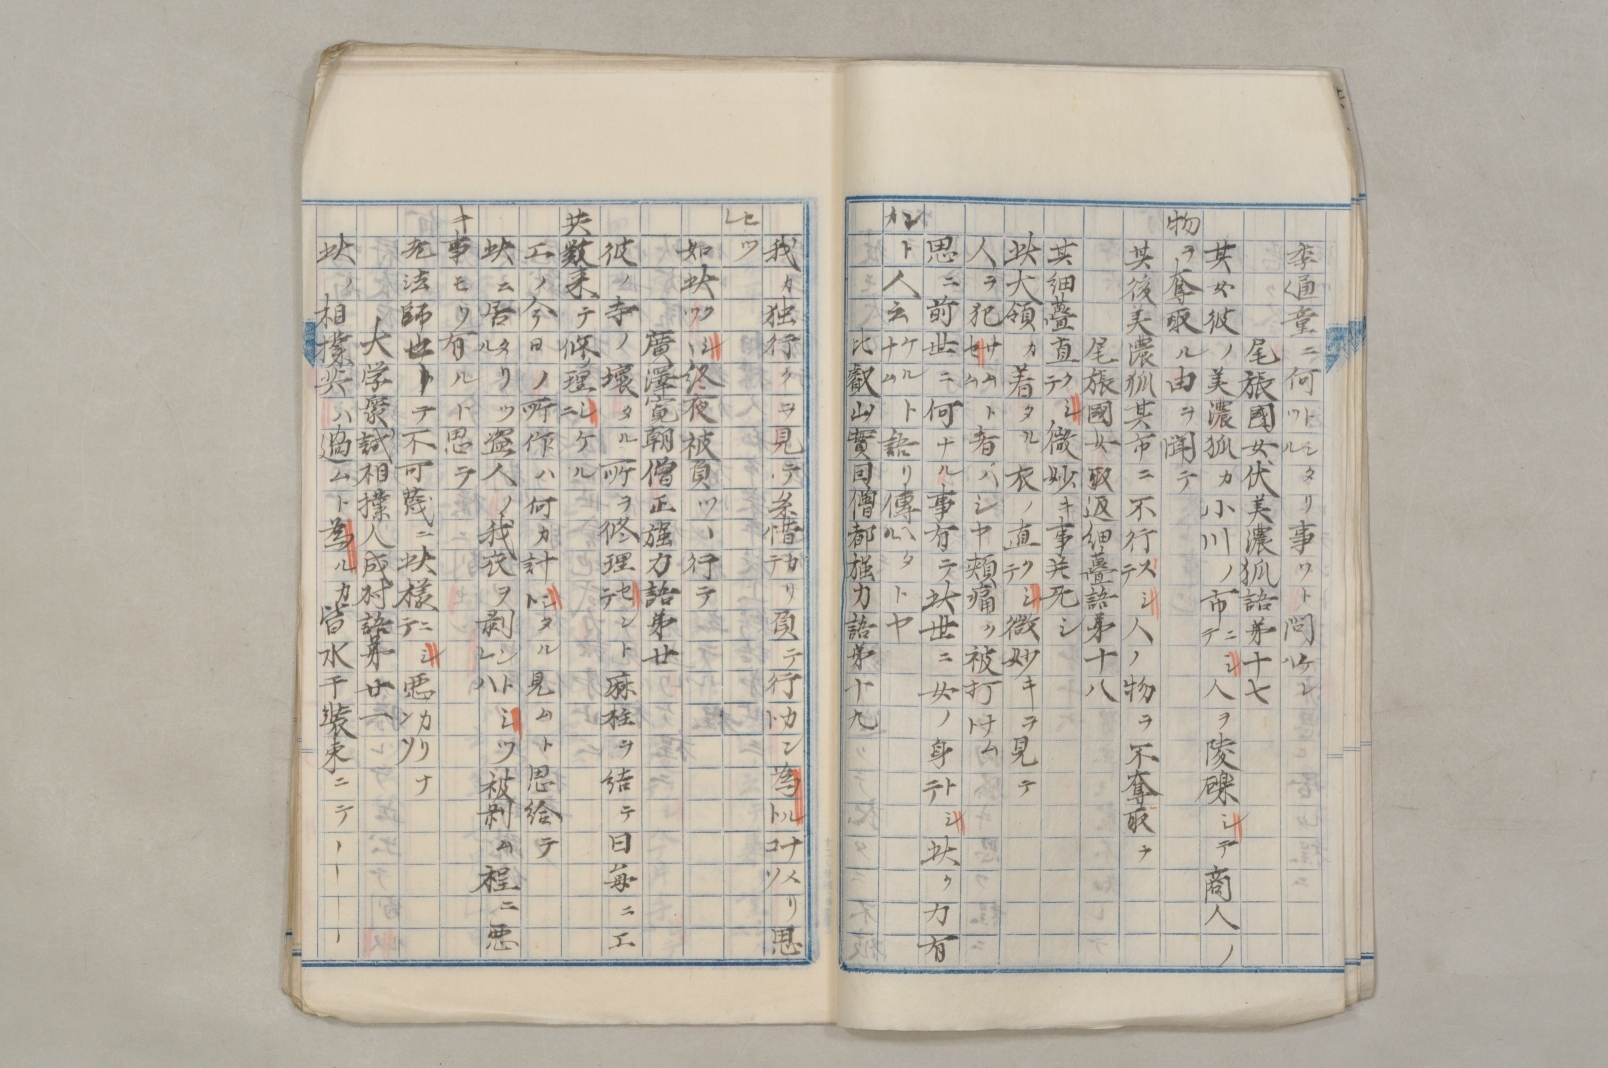 李通童ニ何トシタリツル事ソト問ケレハ
尾張國女伏美濃狐語第十七
其女彼ノ美濃狐カ小川ノ市ニシテ人ヲ陵礫シテ商人ノ
物ヲ奪取ル由ヲ聞テ
其後美濃狐其市ニ不行スシテ人ノ物ヲ不奪取ナ
尾張國女取返細疊語第十八
其細疊直クシテ微妙キ事无死シ
此大領カ着タル衣ノ直クシテ微妙キヲ見テ
人ヲ犯サムセムト者ハシヤ頬痛ク被打ナムト
思ニ前世ニ何ナル事有テ此世ニ女ノ身トシテ此ク力有
カント人云ケルナムト語リ傳ヘタルトヤ
比叡山實因僧都強力語第十九
我カ独行クヲ見テ糸惜カリテ負テ行カント為ルナメリトコソ思
ヒツレ
如此クシツヽ終夜被負ツヽ行テ
廣澤寛朝僧正強力語第廿
彼ノ寺ノ壞タル所ヲ修理セントテ麻柱ヲ結テ日毎ニ工
共数来テ修理シケルニ
工ノ今日ノ所作ハ何カ計シタルト見ムト思給テ
此ニ居タリツル盗人ノ我衣ヲ剥ントシツレハ被剥ム程ニ悪
キ事モソ有ルト思テ
老法師也トテ不可蔑ニ此様ニシテ悪カリナンソ
大学衆試相撲人成村語第廿一
此ノ相撲共ハ過ムト為ルカ皆水干装束ニテーーーー